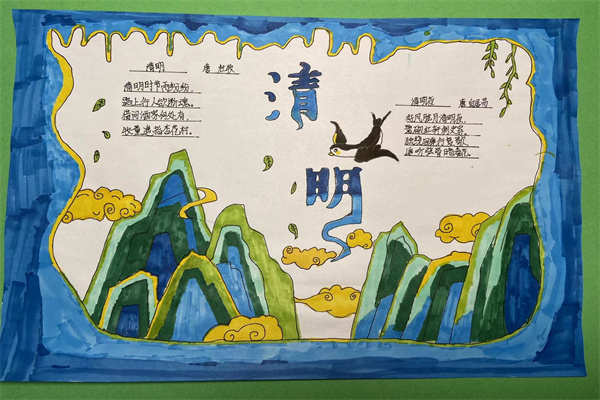 清明 唐 杜牧
清明时节雨纷纷，
路上行人欲断魂。
借问酒家何处有，
牧童遥指杏花村。
清
明
清明夜 唐 白居易
好风胧月清明夜，
碧砌红轩刺史家。
独绕回廊行复歇，
遥听弦管暗看花。